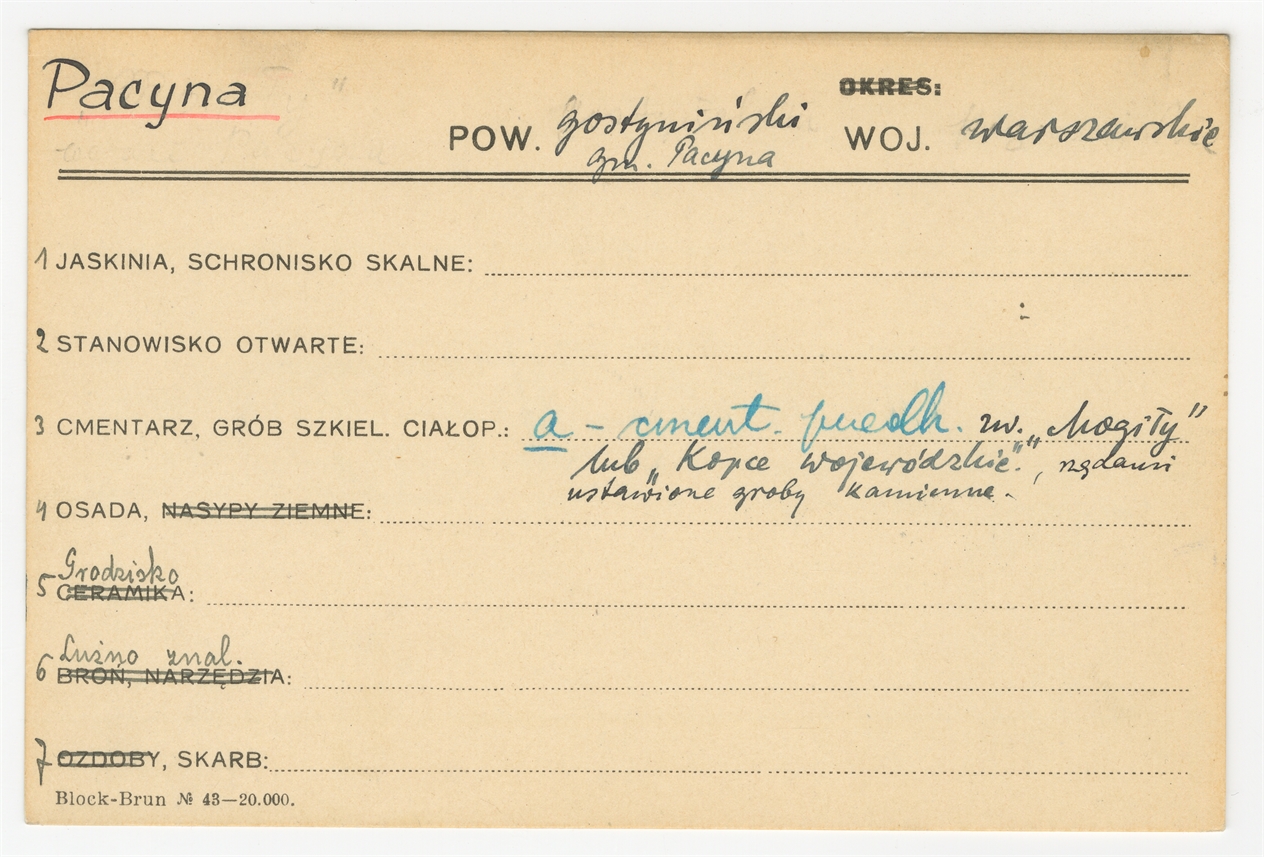 Pacyna
OKRES:
POW. gostyniński WOJ. warszawskie
gm. Pacyna
1 JASKINIA, SCHRONISKO SKALNE:
2 STANOWISKO OTWARTE:
3 CMENTARZ, GRÓB SZKIEL. CIAŁOP.: a - cment. przedh. zw. „Mogiły"
lub „Kopce wojewódzkie", rzędami
ustawione groby kamienne.
4 OSADA, NASYPY ZIEMNE:
Grodzisko
5 CERAMIKA:
Luźno znal.
6 BROŃ, NARZĘDZIA:
7 OZDOBY, SKARB:
Block-Brun № 43—20.000.